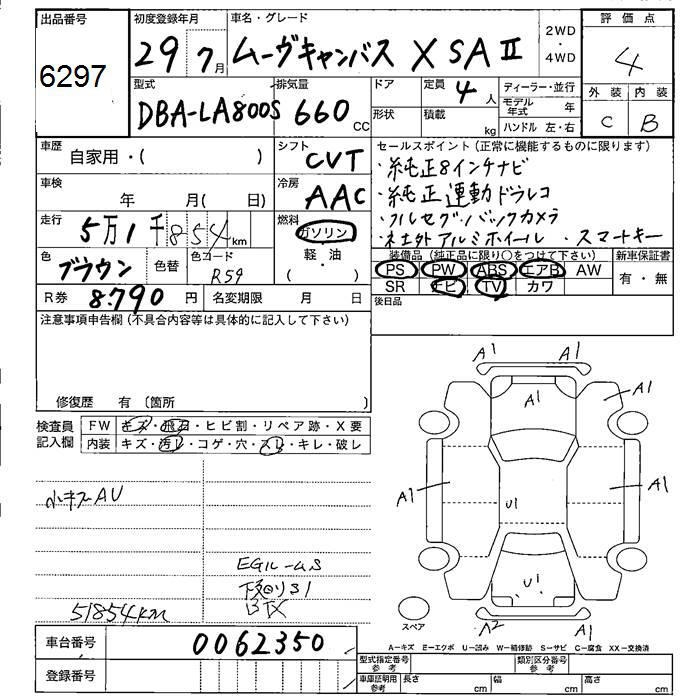 出品番号
6297
初度登録年月
29 7月
車名・グレード
ムーヴキャンバス X SA II
2WD
・
4WD
評価点
4
型式
DBA-LA800S
排気量
660 CC
ドア
形状
定員
4人
積載
kg
ディーラー・並行
モデル年式 年
ハンドル 左・右
外装 内装
C B
車歴
自家用・( )
シフト
CVT
セールスポイント(正常に機能するものに限ります)
・純正8インチナビ
・純正運動ドラレコ
・フルセグ・バックカメラ
・社外アルミホイール ・スマートキー
車検
年 月( 日)
冷房
AAC
走行
5万1千854km
燃料
ガソリン
・
軽・油
( )
色
ブラウン
色替
色コード
R59
装備品(純正品に限り○をつけて下さい)
PS PW ABS エアB AW
SR ナビ TV カワ
新車保証書
有・無
R券 8,790 円
名変期限 月 日
後日品
注意事項申告欄(不具合内容等は具体的に記入して下さい)
修復歴 有〔箇所 〕
検査員
記入欄
FW キズ・飛石・ヒビ割・リペア跡・X要
内装 キズ・汚レ・コゲ・穴・スレ・キレ・破レ
小キズAU
EGルームS
下回りS1
BTX
51854km
A1 A1
A1 A1
A1 A1
U1
U1
A2 A1
スペア
A−キズ E−エクボ U−凹み W−補修跡 S−サビ C−腐食 XX−交換済
車台番号 0062350
登録番号
型式指定番号
参考
類別区分番号
参考
車庫証明用
参考
長さ cm
幅 cm
高さ cm